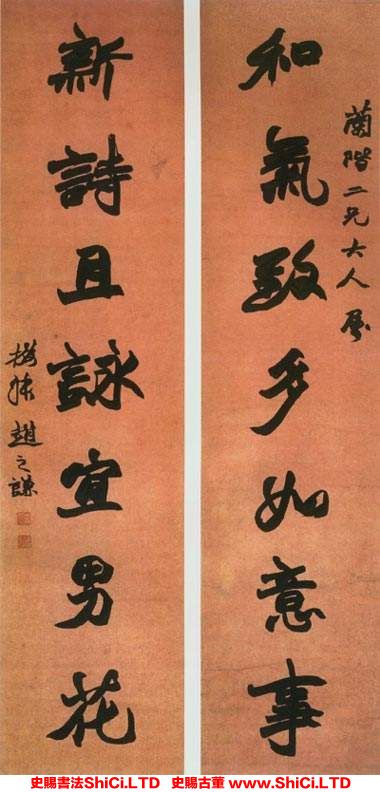 蘭階二兄大人屬
和氣致多如意事
新詩且詠宜男花
撝叔趙之謙
史賜書法ShiCi.LTD 史賜古董 www.ShiCi.LTD